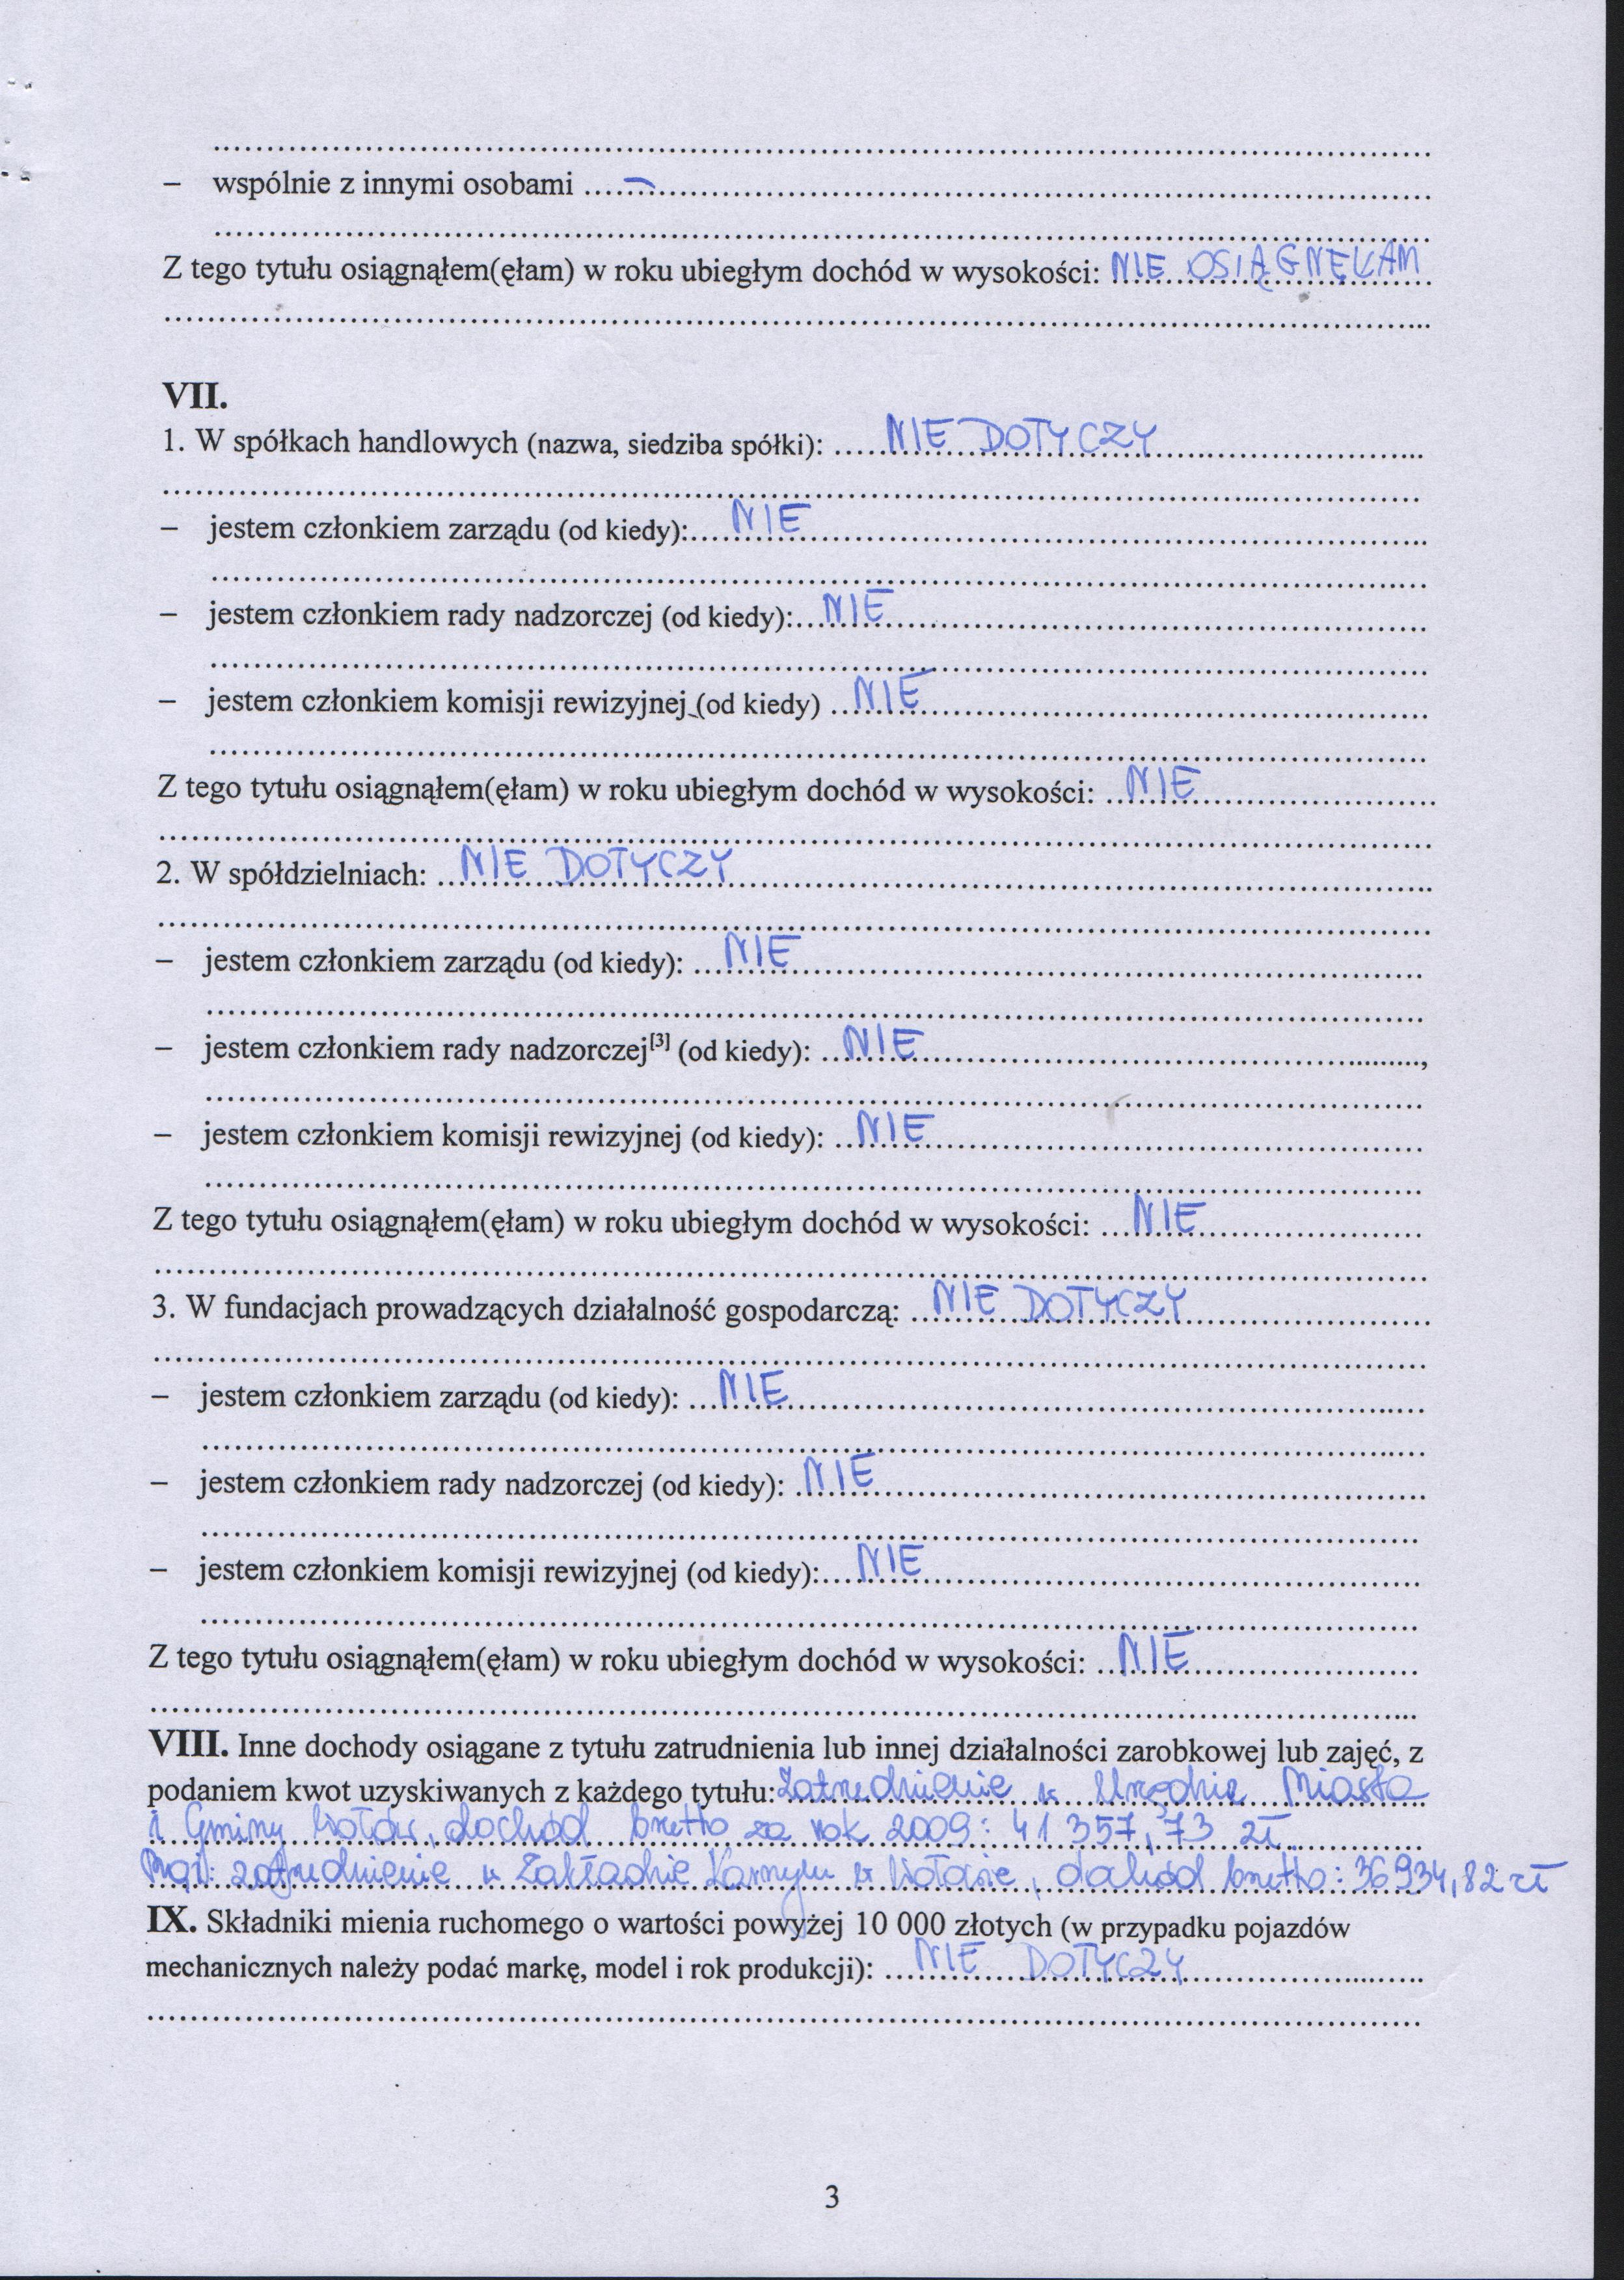 – wspólnie z innymi osobami ..... – .....
Z tego tytułu osiągnąłem(ęłam) w roku ubiegłym dochód w wysokości: NIE OSIĄGNĘŁAM
VII.
1. W spółkach handlowych (nazwa, siedziba spółki): ..... NIE DOTYCZY .....
– jestem członkiem zarządu (od kiedy):.... NIE .....
– jestem członkiem rady nadzorczej (od kiedy):... NIE .....
– jestem członkiem komisji rewizyjnej (od kiedy) ... NIE .....
Z tego tytułu osiągnąłem(ęłam) w roku ubiegłym dochód w wysokości: ... NIE .....
2. W spółdzielniach: ... NIE DOTYCZY .....
– jestem członkiem zarządu (od kiedy): ... NIE .....
– jestem członkiem rady nadzorczej[3] (od kiedy): ... NIE .....,
– jestem członkiem komisji rewizyjnej (od kiedy): ... NIE .....
Z tego tytułu osiągnąłem(ęłam) w roku ubiegłym dochód w wysokości: ... NIE .....
3. W fundacjach prowadzących działalność gospodarczą: ... NIE DOTYCZY .....
– jestem członkiem zarządu (od kiedy): ... NIE .....
– jestem członkiem rady nadzorczej (od kiedy): ... NIE .....
– jestem członkiem komisji rewizyjnej (od kiedy):... NIE .....
Z tego tytułu osiągnąłem(ęłam) w roku ubiegłym dochód w wysokości: ... NIE .....
VIII. Inne dochody osiągane z tytułu zatrudnienia lub innej działalności zarobkowej lub zajęć, z
podaniem kwot uzyskiwanych z każdego tytułu: Zatrudnienie w Urzędzie Miasta
i Gminy Wołów, dochód brutto za rok 2009: 41 357,73 zł.
Mąż: zatrudnienie w Zakładzie Karnym w Wołowie, dochód brutto: 36934,82 zł
IX. Składniki mienia ruchomego o wartości powyżej 10 000 złotych (w przypadku pojazdów
mechanicznych należy podać markę, model i rok produkcji): ... NIE DOTYCZY .....
3